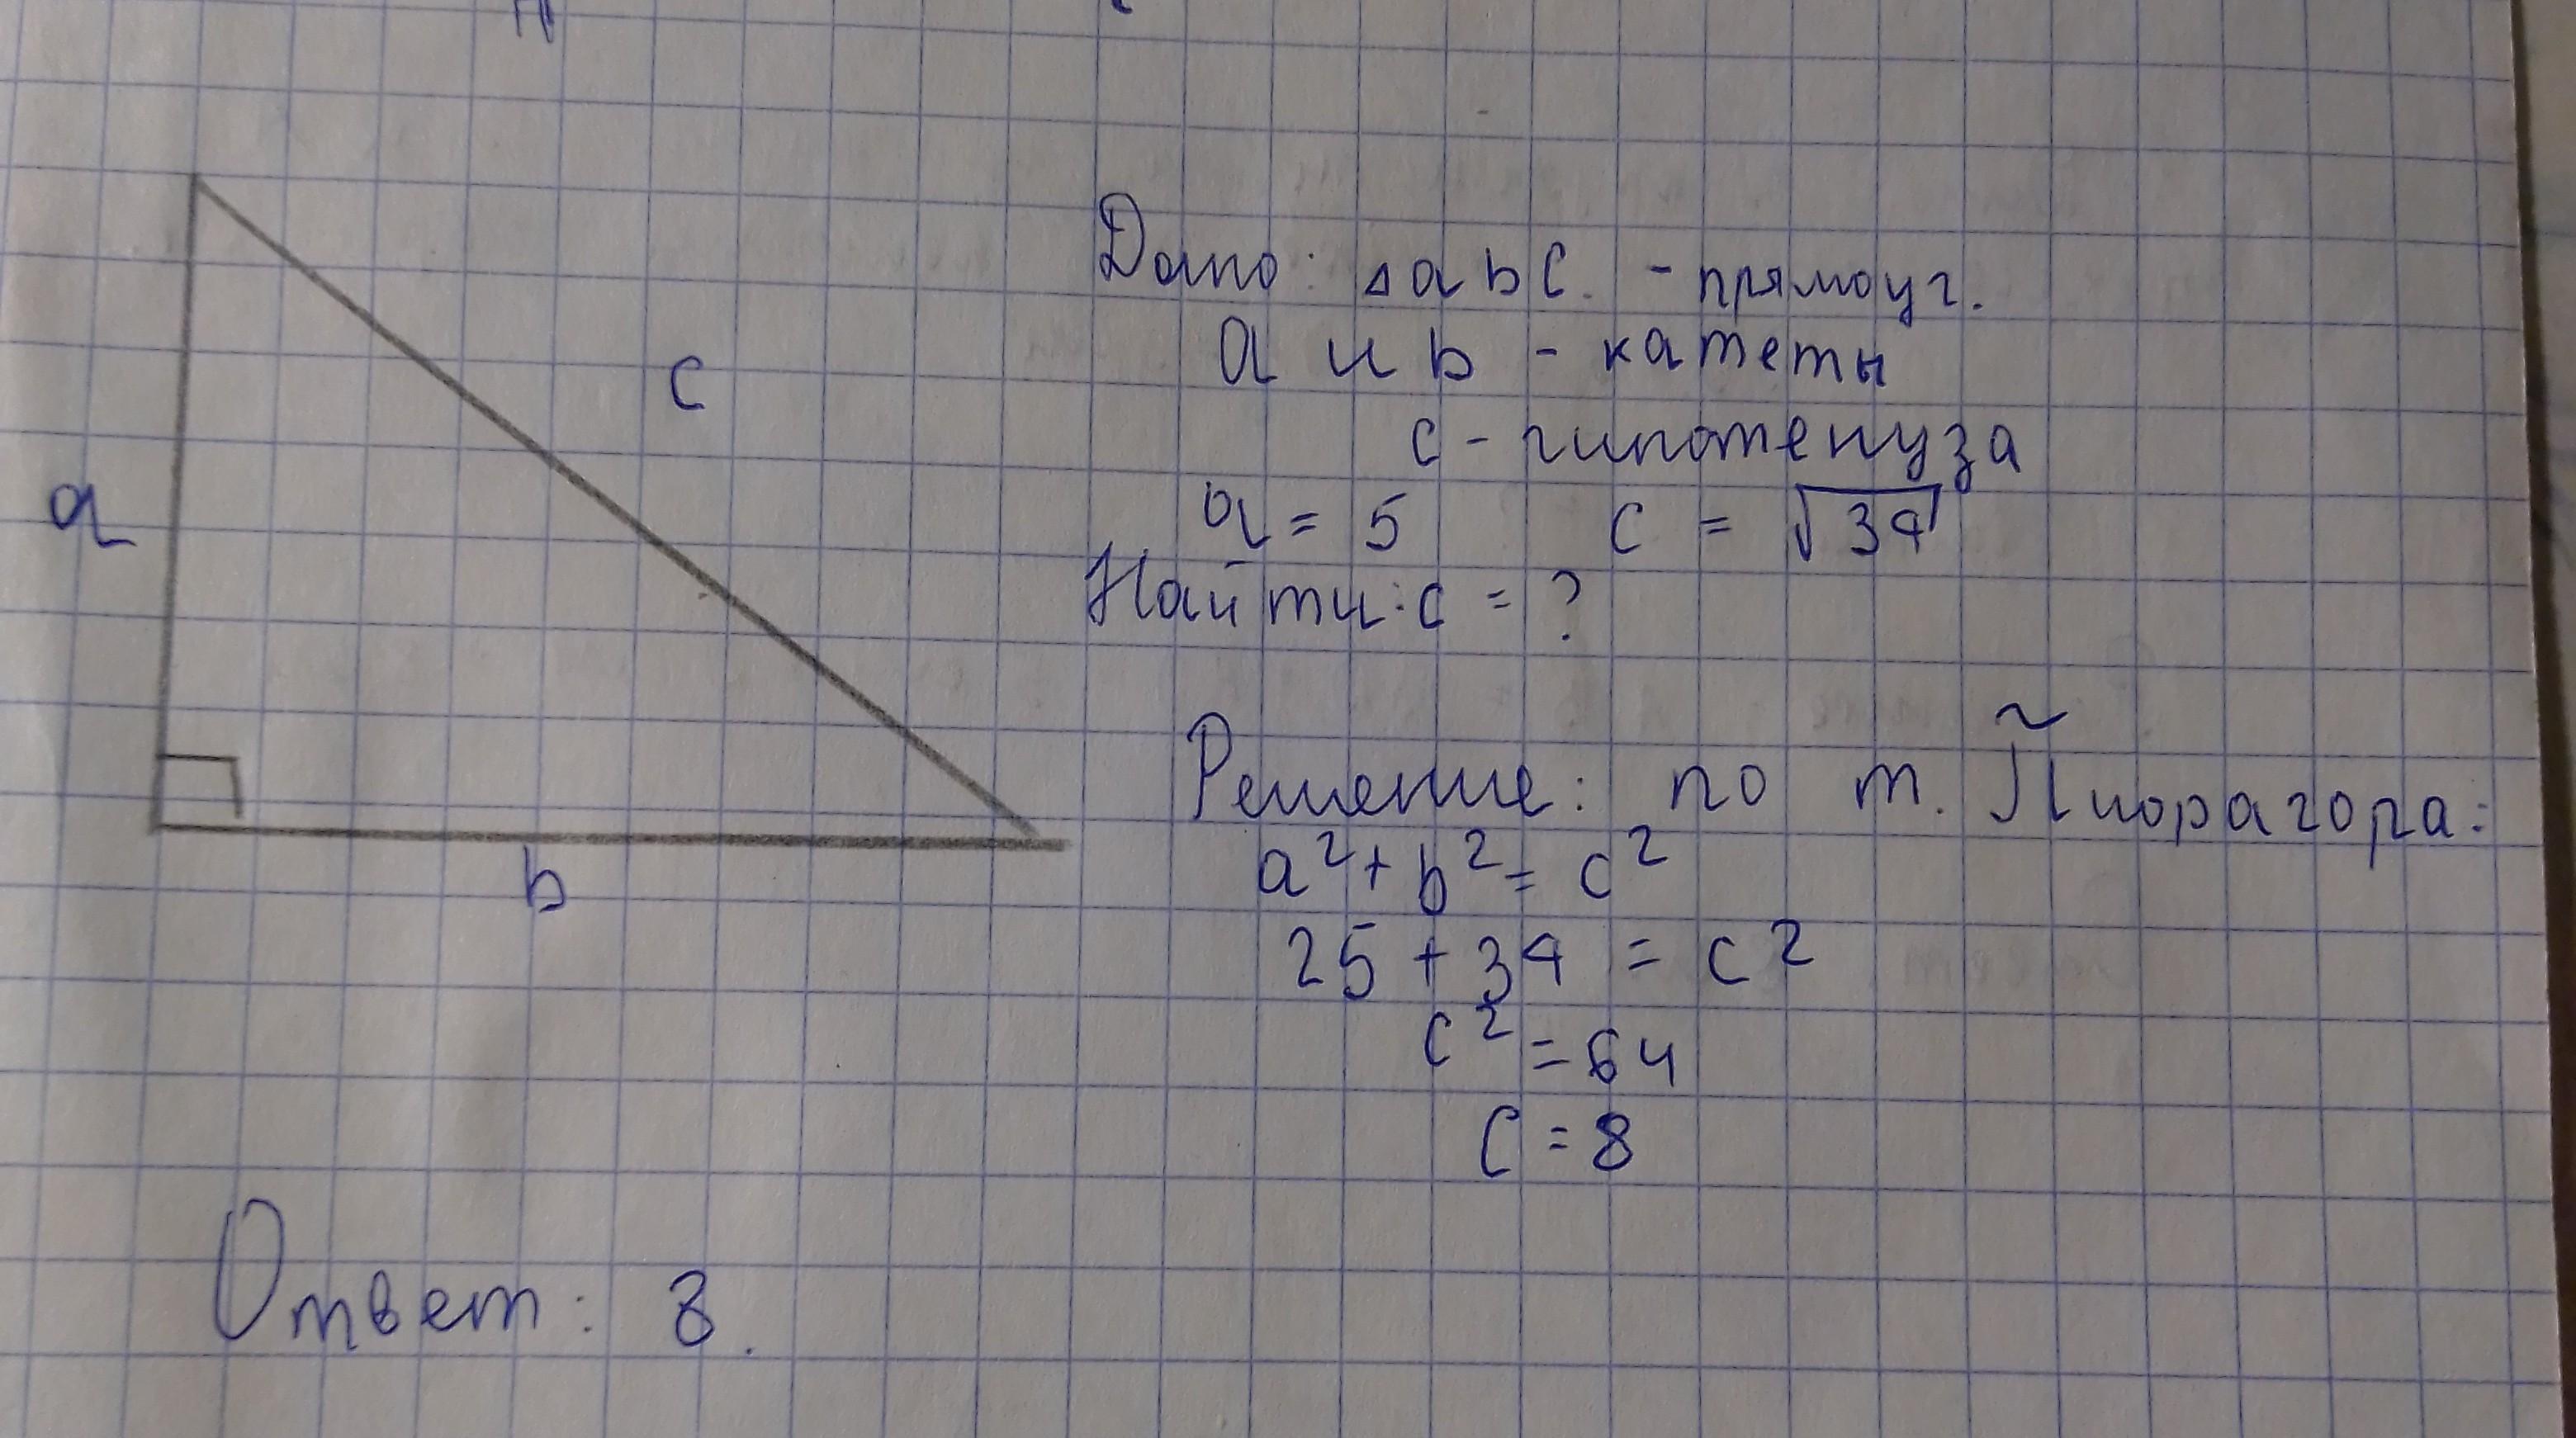 Дано: △abc. - прямоуг.
a и b - катеты
c - гипотенуза
a = 5 c = √34
Найти: c = ?
Решение: по т. Пифагора:
a² + b² = c²
25 + 34 = c²
c² = 64
c = 8
Ответ: 8.
a
c
b